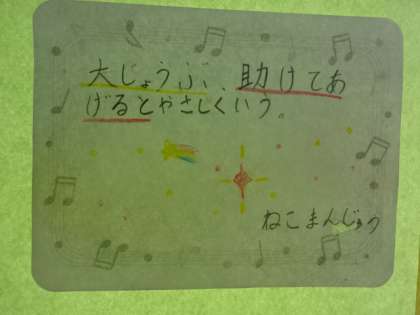 大じょうぶ、助けてあ
げるとやさしくいう。
ねこまんじゅう